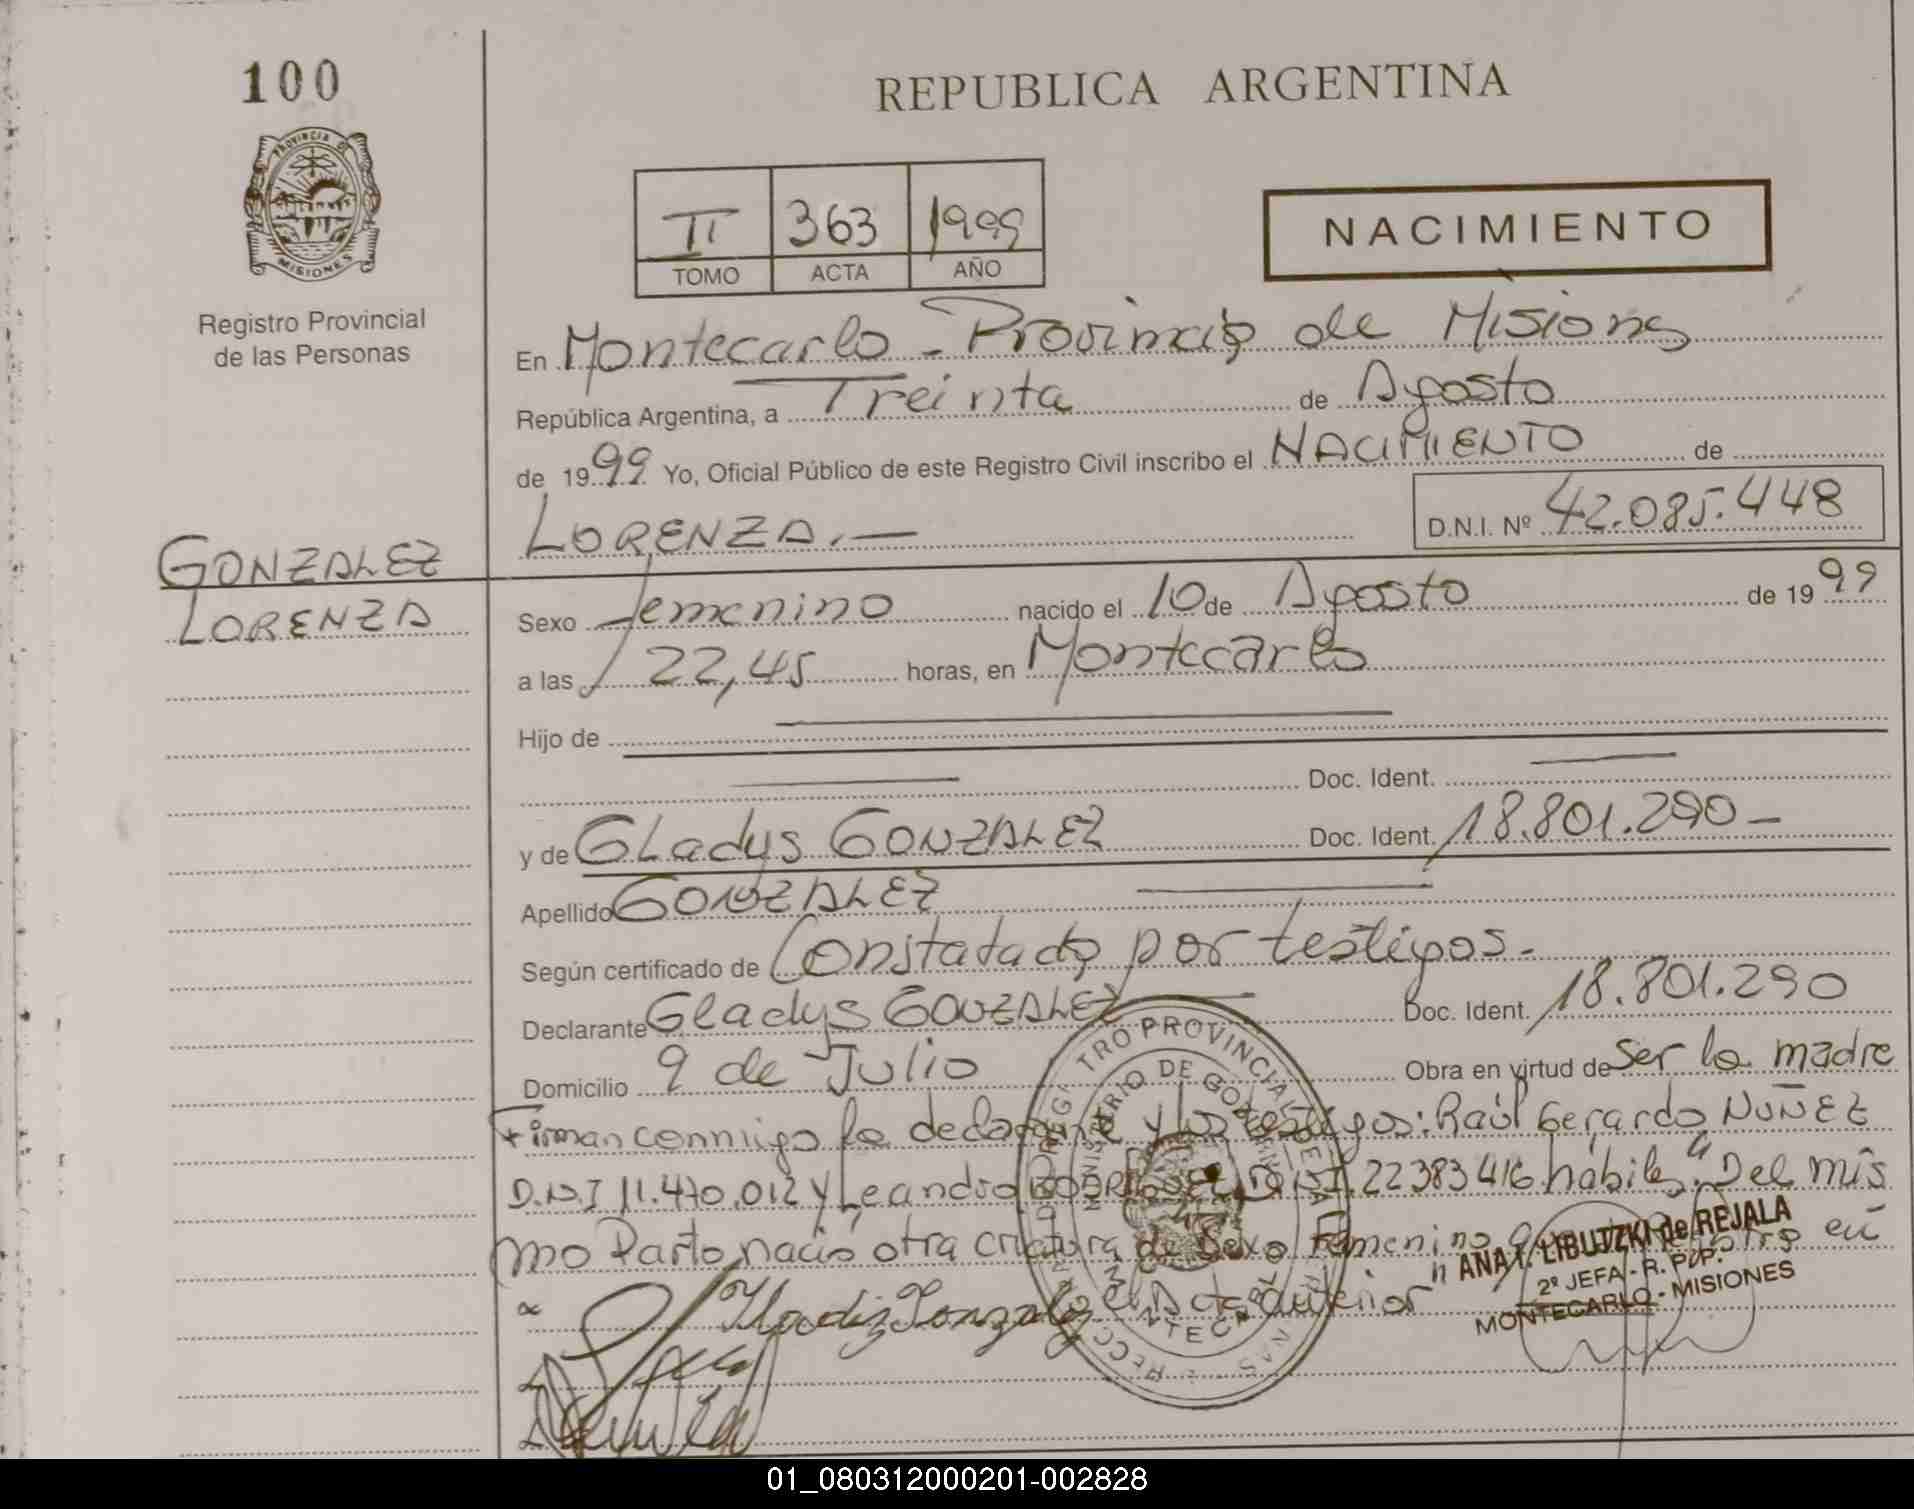 100
REPUBLICA ARGENTINA
PROVINCIA D
MISIONES
Registro Provincial
de las Personas
II 363 1999
TOMO ACTA AÑO
NACIMIENTO
En Montecarlo - Provincia de Misiones
República Argentina, a Treinta de Agosto
de 1999 Yo, Oficial Público de este Registro Civil inscribo el NACIMIENTO de
LORENZA.—
D.N.I. Nº 42.085.448
GONZALEZ
LORENZA
Sexo femenino nacido el 10 de Agosto de 1999
a las 22,45 horas, en Montecarlo
Hijo de
Doc. Ident.
y de Gladys GONZALEZ Doc. Ident. 18.801.290-
Apellido GONZALEZ
Según certificado de Constatado por testigos.-
Declarante Gladys GONZALEZ Doc. Ident. 18.801.290
Domicilio 9 de Julio Obra en virtud de ser la madre
Firman conmigo la declarante y los testigos: Raúl Gerardo NUÑEZ
D.N.I 11.470.012 y Leandro RODRIGUEZ D.N.I. 22383416 hábiles." Del mis
mo Parto nació otra criatura de Sexo Femenino en
el Acta anterior"
Gladiz Gonzalez
REGISTRO PROVINCIAL DE LAS
MINISTERIO DE GOBIERNO
MONTECARLO
ANA I. LIBUTZKI de REJALA
2º JEFA - R. P. P.
MONTECARLO - MISIONES
01_080312000201-002828